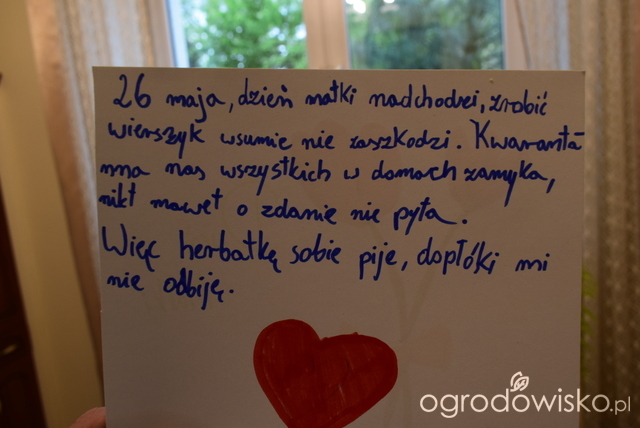 26 maja, dzień matki nadchodzi, zrobić
wierszyk wsumie nie zaszkodzi. Kwaranta-
nna nas wszystkich w domach zamyka,
nikt nawet o zdanie nie pyta.
Więc herbatkę sobie pije, dopłóki mi
nie odbiję.
ogrodowisko.pl